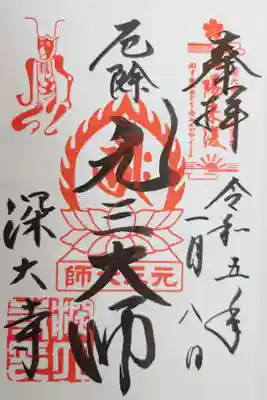 奉拝
令和五年
一月八日
厄除
元三大師
元三大師
深大寺